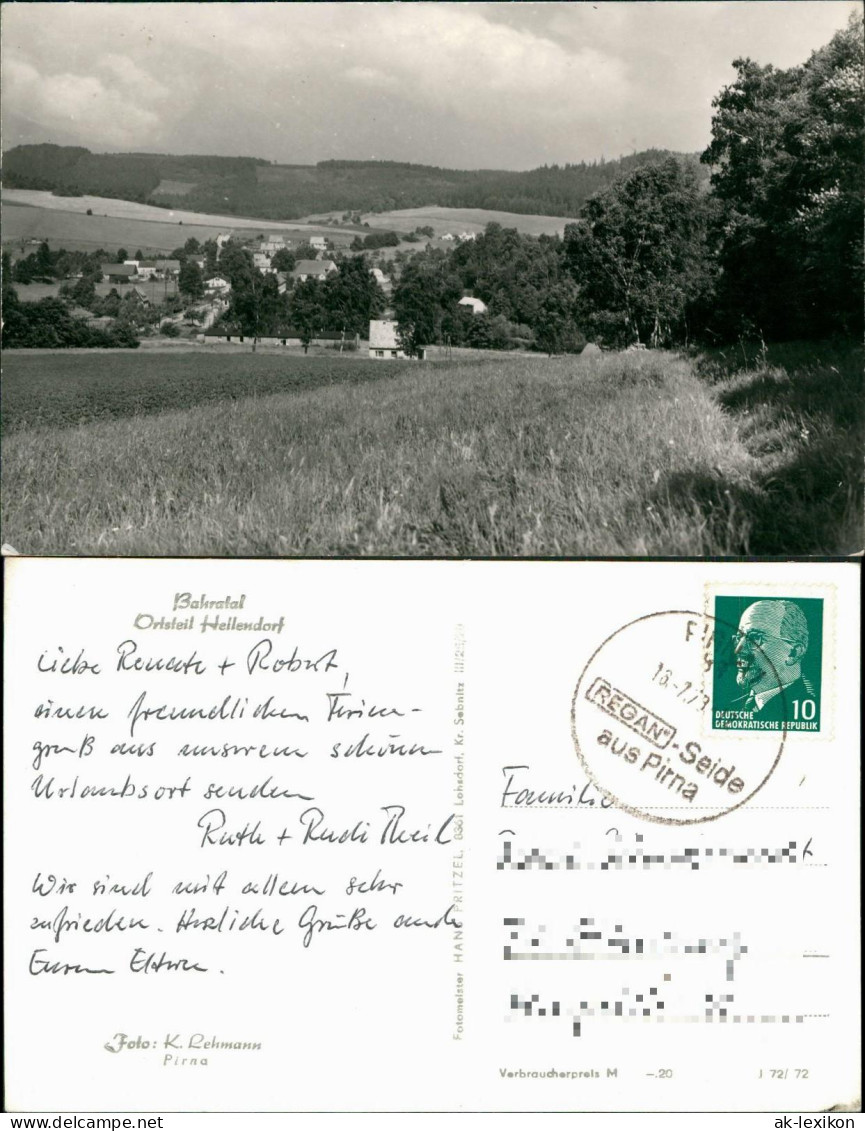 Bahratal
Ortsteil Hellendorf
Liebe Renate + Robert,
einen freundlichen Ferien-
gruß aus unserem schönen
Urlaubsort senden
Ruth + Rudi Theil
Wir sind mit allem sehr
zufrieden. Herzliche Grüße auch
Euren Eltern.
Foto: K. Lehmann
Pirna
Fotomeister HANS PRITZEL, 8361 Lohsdorf, Kr. Sebnitz
PIRNA
16.-7.73
REGAN®-Seide
aus Pirna
10
DEUTSCHE
DEMOKRATISCHE REPUBLIK
Familie
Verbraucherpreis M -.20 J 72/72
ak-lexikon